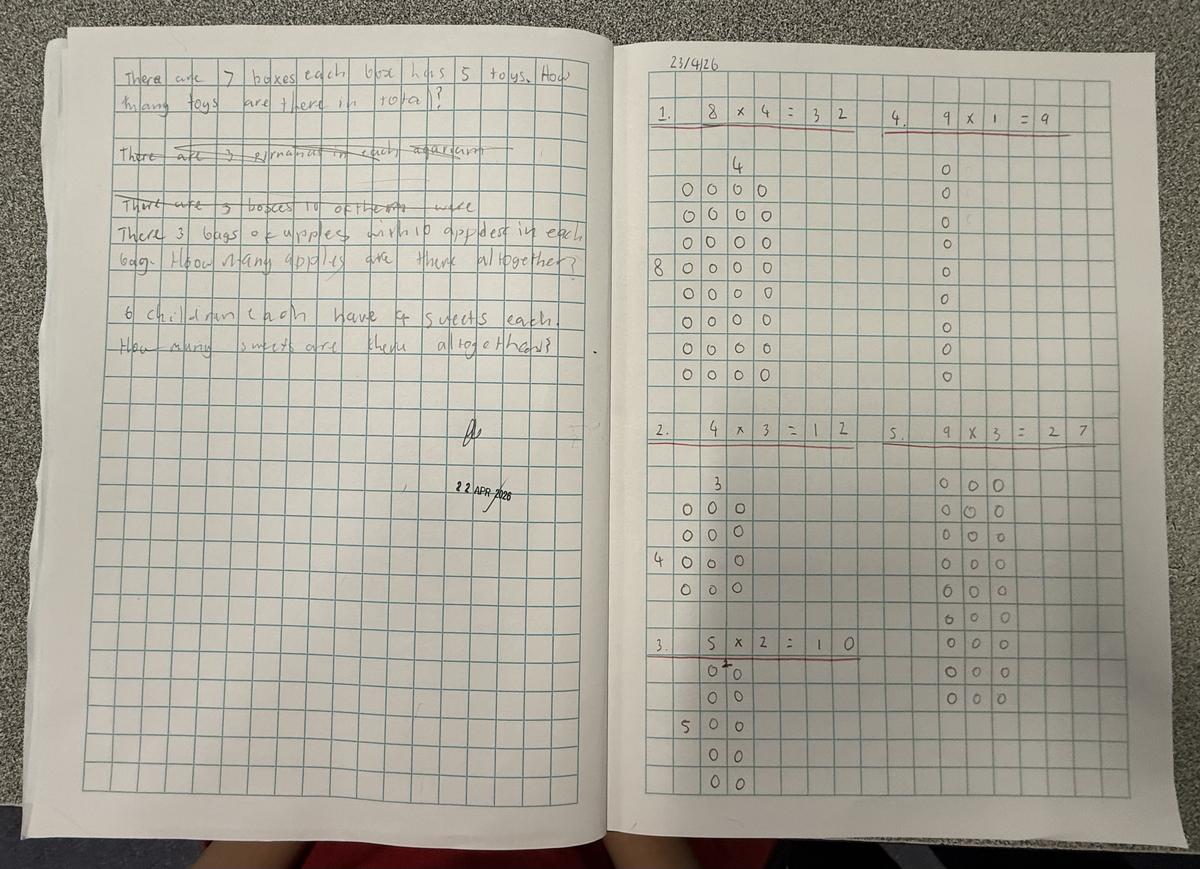 There are 7 boxes each box has 5 toys. How
many toys are there in total?
There are 3 in each
There are 3 boxces 10 of were
There 3 bags of apples with 10 in each
bag. Hoow many apples are there altogether?
6 each have 4 sweets each.
How many sweets are altogether?
22 APR 2026
23/4/26
1. 8 × 4 = 32
4
0 0 0 0
0 0 0 0
0 0 0 0
8 0 0 0 0
0 0 0 0
0 0 0 0
0 0 0 0
0 0 0 0
2. 4 × 3 = 12
3
0 0 0
0 0 0
4 0 0 0
0 0 0
3. 5 × 2 = 10
0 2 0
0 0
5 0 0
0 0
0 0
4. 9 × 1 = 9
0
0
0
0
0
0
0
0
0
5. 9 × 3 = 27
0 0 0
0 0 0
0 0 0
0 0 0
0 0 0
0 0 0
0 0 0
0 0 0
0 0 0